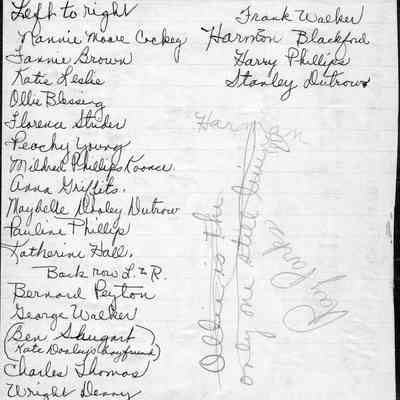 Left to right
Nannie Moore Cockey
Fannie Brown
Katie Leslie
Ollie Blessing
Florence Strider
Peachy Young
Mildred Phillips Koonce.
Anna Griffits.
Maybelle Dooley Dutrow
Pauline Phillips
Katherine Hall.
Back row L & R.
Bernard Peyton
George Walker
(Ben Shugart
Kate Dooley's boyfriend)
Charles Thomas
Wright Denny
Frank Walker
Harmon Blackford
Harry Phillips
Stanley Dutrow
Harman
Ollie is the
only one still living
Ray Parks